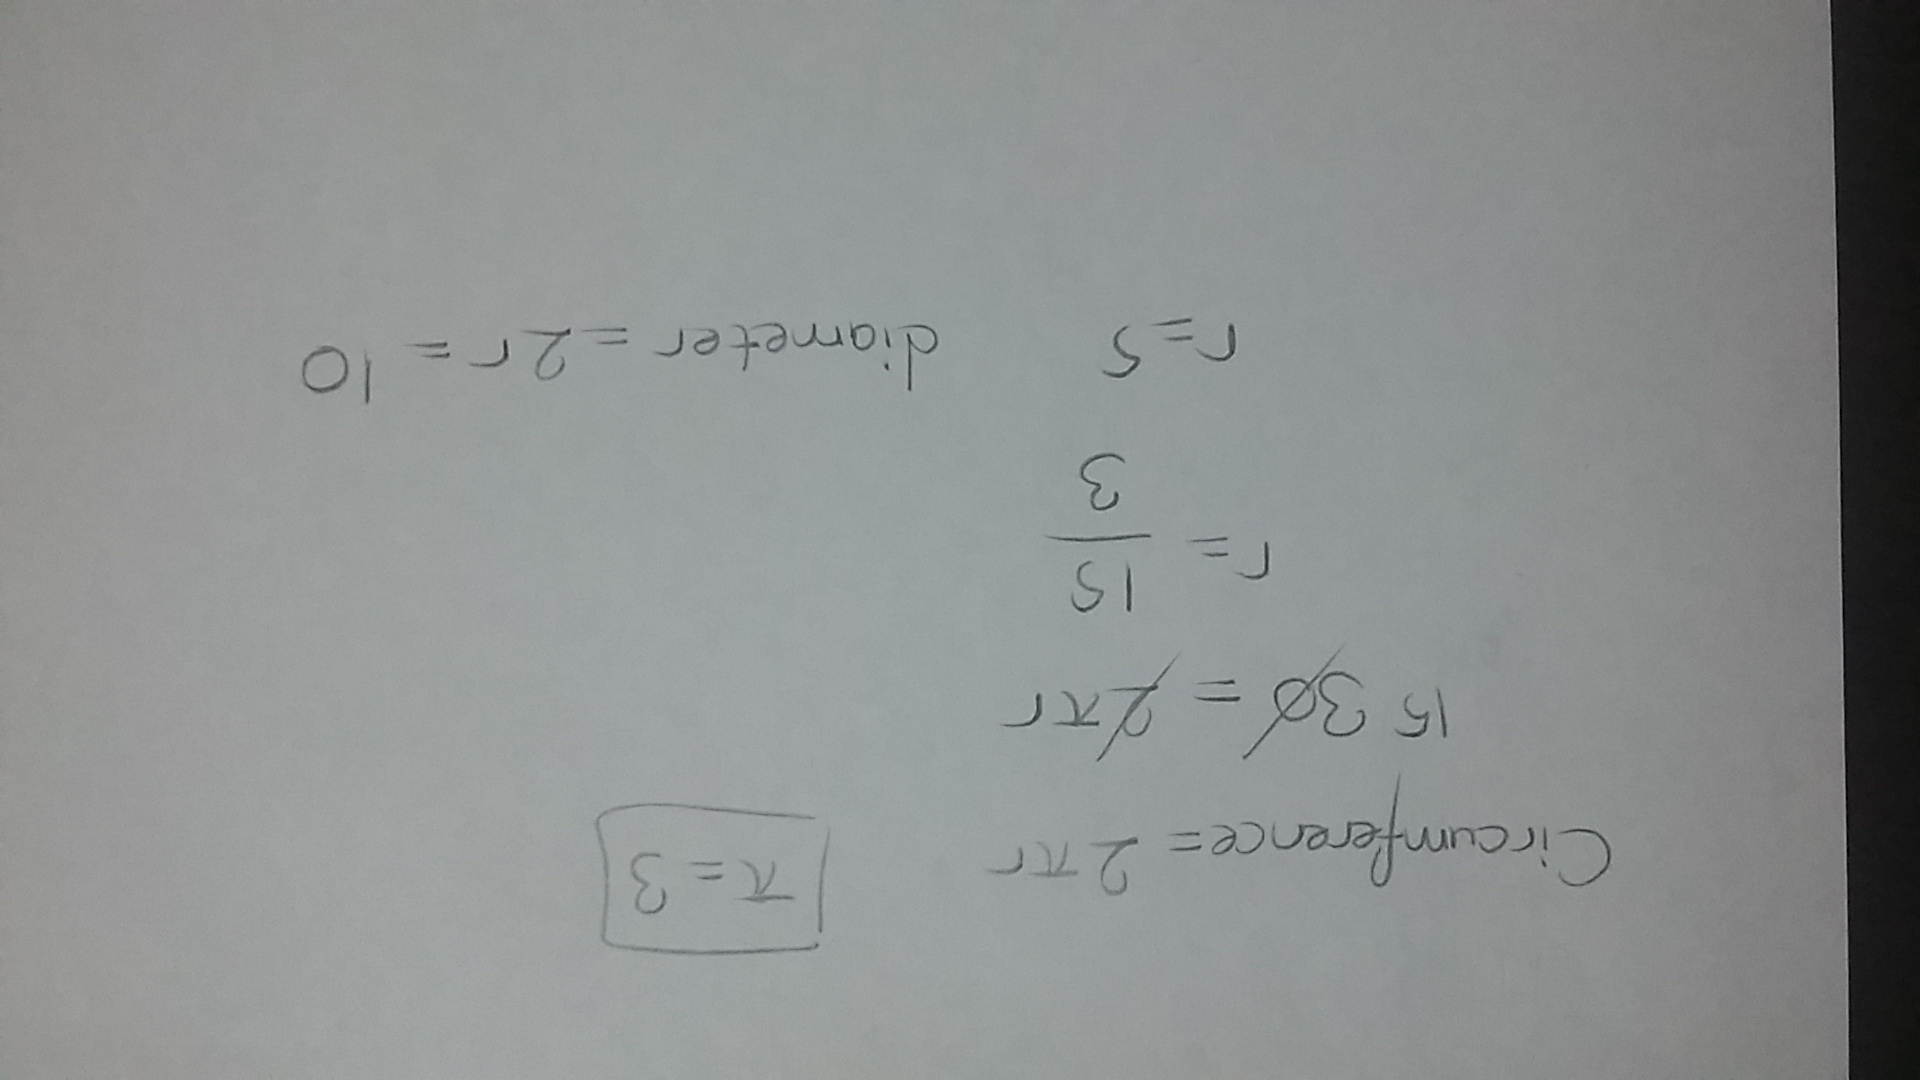 Circumference = 2πr
π = 3
15 30 = 2πr
r = 15/3
r = 5 diameter = 2r = 10